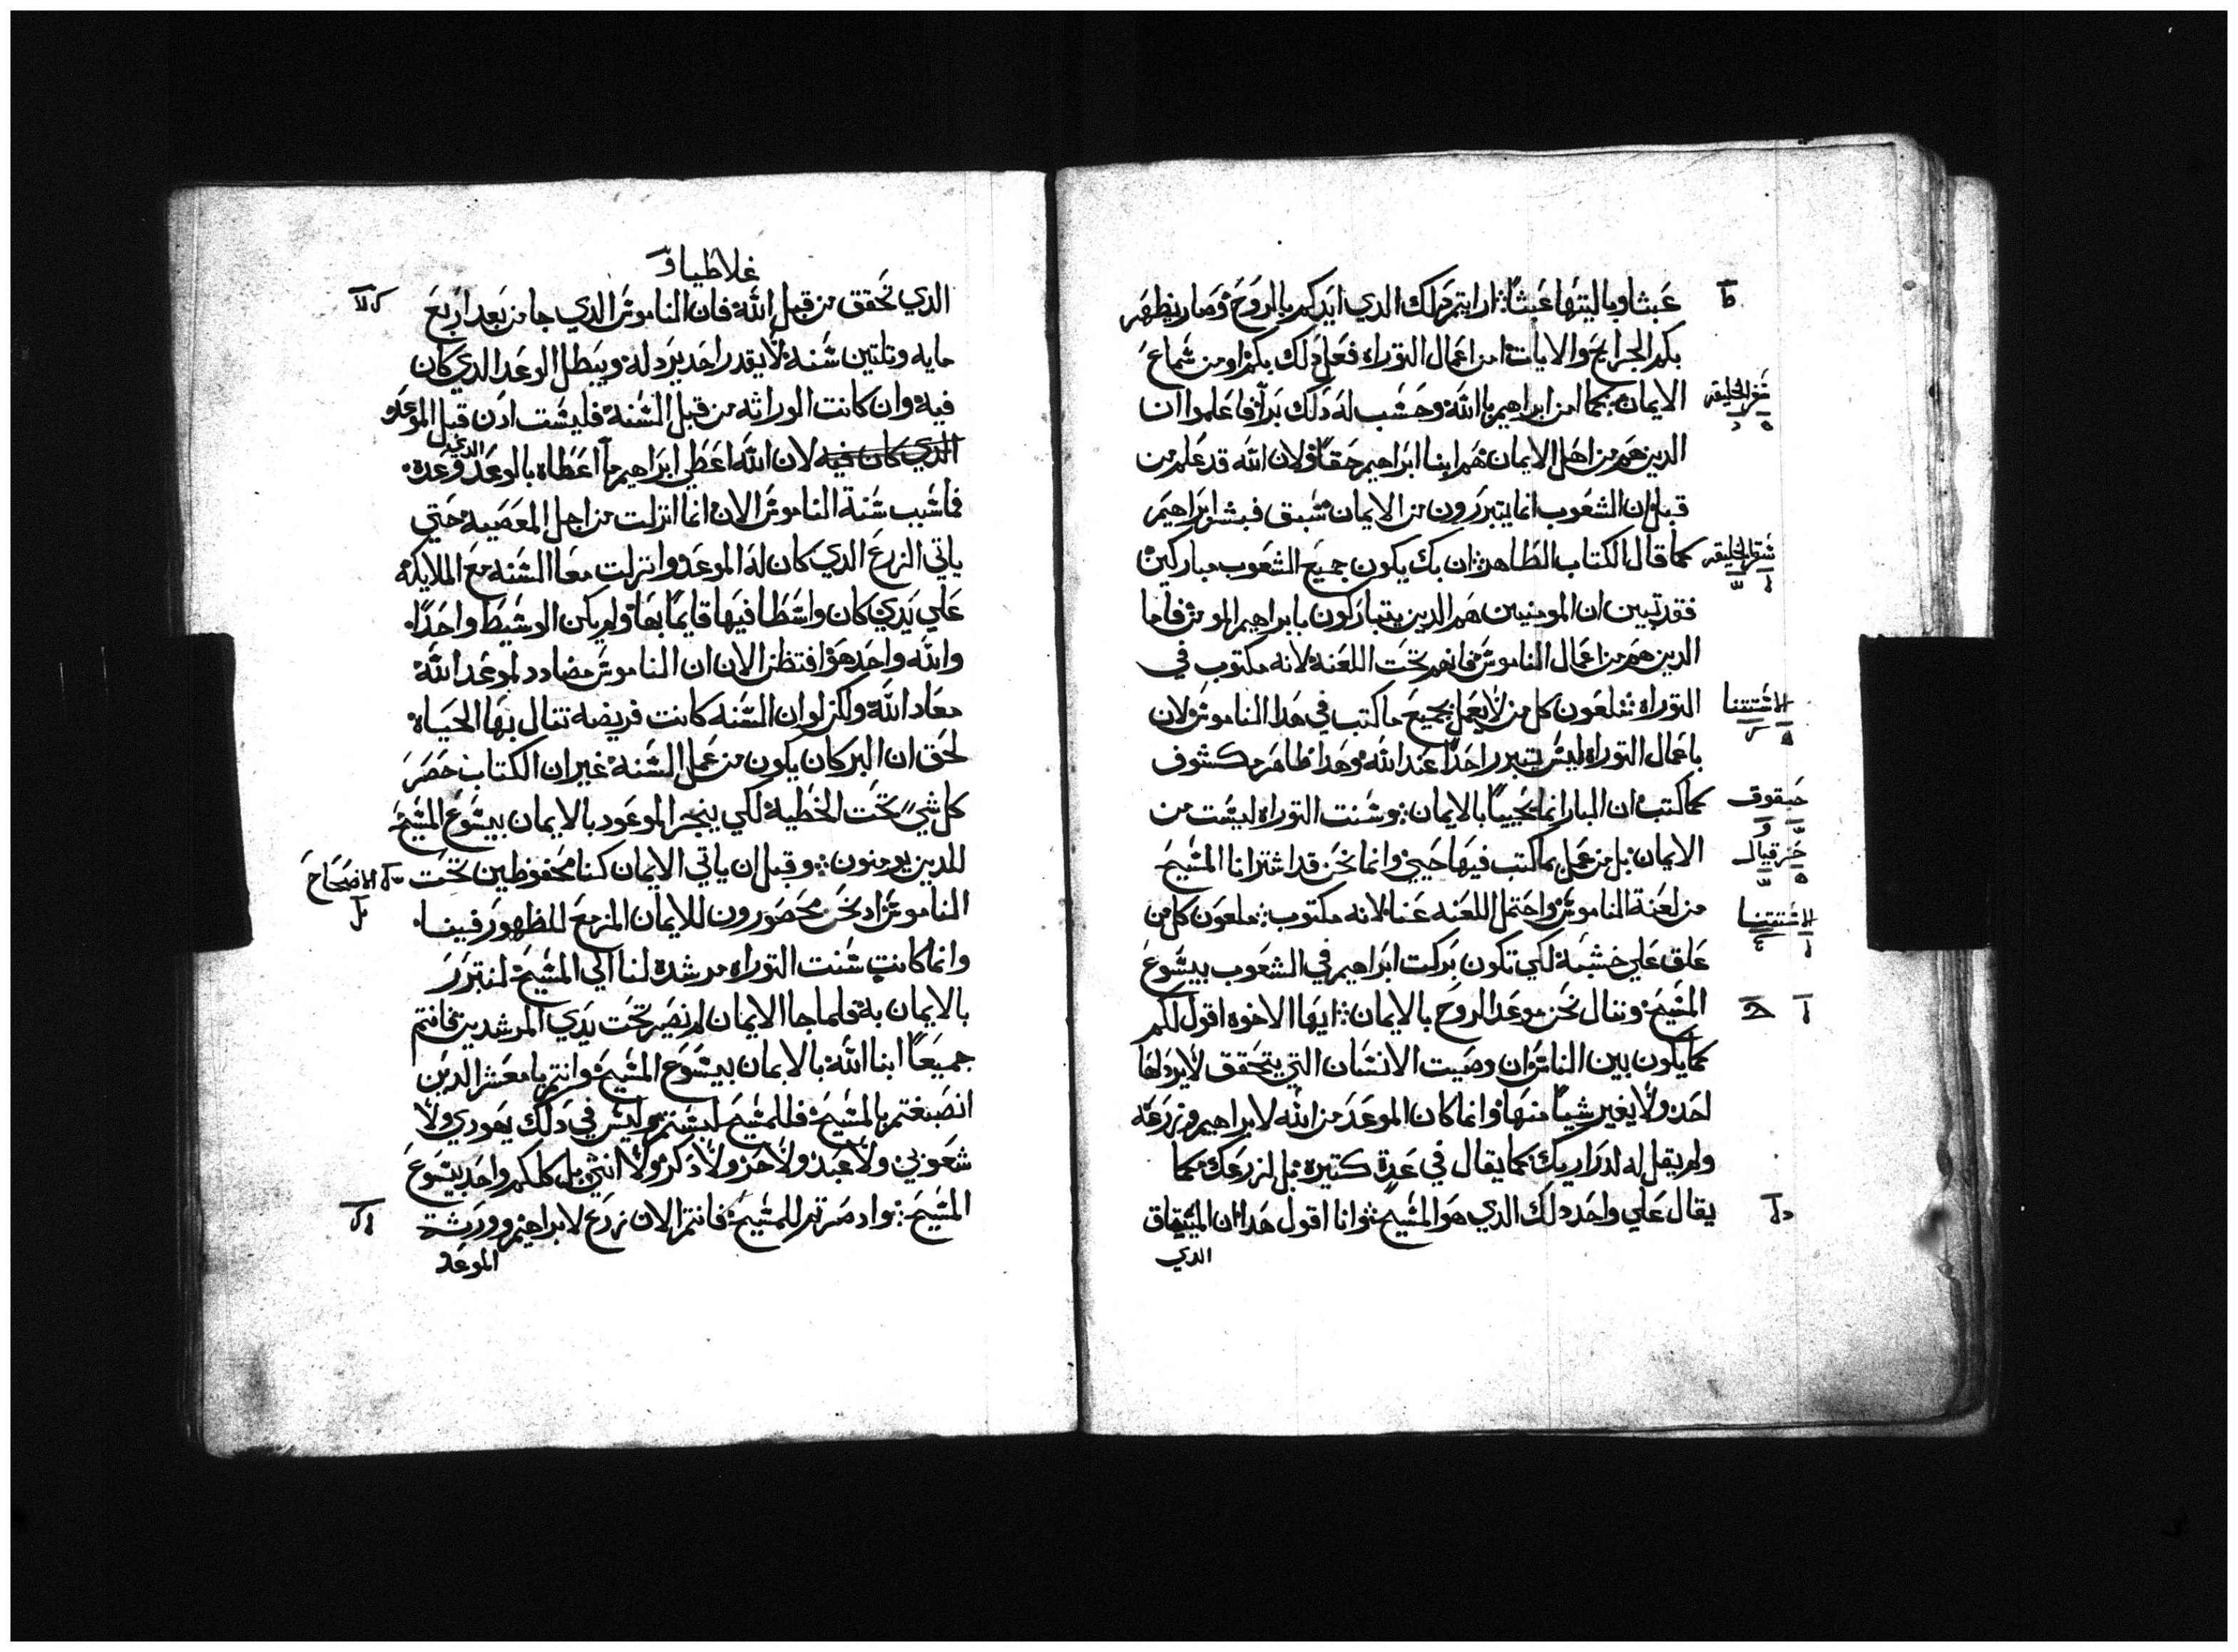 عبثا وياليتها عبثا: ارايتم دلك الدي ايدكم بالروح وصار يظهر
بكم الجرايح والايات امن اعمال التوراه فعل دلك بكم او من سماع
الايمان: كما امن ابراهيم بالله وحسب له دلك برا فاعلموا ان
سفر الخليقه
الدين هم من اهل الايمان هم ابنا ابراهيم حقا ولان الله قد علم من
قبل ان الشعوب انما يتبررون من الايمان سبق فبشر ابراهيم
كما قال الكتاب الطاهر ان بك يكون جميع الشعوب مباركين
سفر الخليقه
فقد تبين ان المومنين هم الدين يتباركون بابراهيم المومن فاما
الدين هم من اعمال الناموس فانهم تحت اللعنه لانه مكتوب في
التوراه ملعون كل من لا يعمل بجميع ما كتب في هدا الناموس ولان
الاستتنا
باعمال التوراه ليس يتبرر احدا عند الله وهدا ظاهر مكشوف
كما كتب ان البار انما يحييا بالايمان: وسنت التوراه ليست من
حبقوق
الايمان بل من عمل بما كتب فيها حيي وانما نحن قد اشترانا المسيح
حزقيال
من لعنة الناموس واحتمل اللعنه عنا لانه مكتوب: ملعون كل من
الاستتنا
علق علي خشبة لكي تكون بركت ابراهيم في الشعوب بيسوع
المسيح وننال نحن موعد الروح بالايمان: ايها الاخوه اقول لكم
كما يكون بين الناس وان وصيت الانسان التي يتحقق لا يردلها
احد ولا يغير شيا منها وانما كان الموعد من الله لابراهيم وزرعه
ولم يقل له لدراريك كما يقال في عدة كتيره بل لزرعك كما
يقال علي واحد دلك الدي هو المسيح: وانا اقول هدا ان الميتاق
الدي
غلاطيا
الدي تحقق من قبل الله فان الناموس الدي جا من بعد اربع
مايه وتلتين سنة لا يقدر احد يردله ويبطل الوعد الدي كان
فيه وان كانت الوراثه من قبل السنة فليست ادن قبل الموعد
الدي كان فيه لان الله اعطي ابراهيم ما اعطاه بالوعد الدي وعده
فما سبب سنة الناموس الان انما انزلت من اجل المعصية حتي
ياتي الزرع الدي كان له الموعد وانزلت معا السنه مع الملايكه
علي يدي كان واسطا فيها قايما بها ولم يكن الوسيط واحدا
والله واحد هو افتظن الان ان الناموس مضادد لموعد الله
معاد الله ولكن لو ان السنه كانت فريضه تنال بها الحياه
لحق ان البر كان يكون من عمل السنة غير ان الكتاب حصر
كل شي تحت الخطية لكي ينجز الموعود بالايمان بيسوع المسيح
للدين يومنون: وقبل ان ياتي الايمان كنا محفوظين تحت
الاصحاح
الناموس اد نحن محصورون للايمان المزمع للظهور فينا
وانما كانت سنت التوراه مرشدة لنا الي المسيح لنتبرر
بالايمان به فلما جا الايمان لم نصير تحت يدي المرشدين فانتم
جميعا ابنا الله بالايمان بيسوع المسيح وانتم يا معشر الدين
انصبغتم بالمسيح فللمسيح لبستم وليس في دلك يهودي ولا
شعوبي ولا عبد ولا حر ولا دكر ولا انثي بل كلكم واحد بيسوع
المسيح: واد صرتم للمسيح فانتم الان زرع لابراهيم وورثة
الموعد